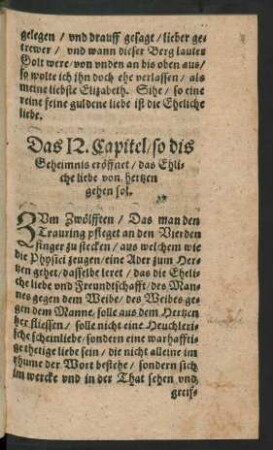 gelegen / vnd drauff gesagt / lieber ge-
trewer / vnd wann dieser Berg lauter
Golt were / von vnden an bis oben aus /
so wolte ich jhn doch ehe verlassen / als
meine liebste Elizabeth. Sihe / so eine
reine feine guldene liebe ist die Eheliche
liebe.
Das 12. Capitel / so dis
Geheimnis eröffnet / das Ehli-
che liebe von hertzen
gehen sol.
ZVm Zwölfften / Das man den
Trauring pfleget an den Vierden
finger zu stecken / aus welchem wie
die Physici zeugen / eine Ader zum Her-
tzen gehet / dasselbe leret / das die Eheli-
che liebe vnd Freundtschafft / des Man-
nes gegen dem Weibe / des Weibes ge-
gen dem Manne, solle aus dem Hertzen
her fliessen / solle nicht eine Heuchleri-
sche scheinliebe / sondern eine warhaffti-
ge thetige liebe sein / die nicht alleine im
rhume der Wort bestehe / sondern sich
im wercke vnd in der That sehen vnd
greif-